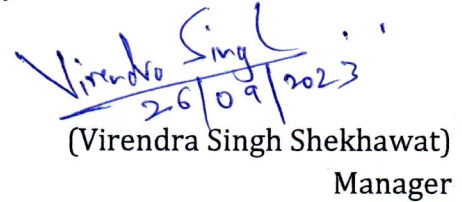 Virendra Singh
26/09/2023
(Virendra Singh Shekhawat)
Manager